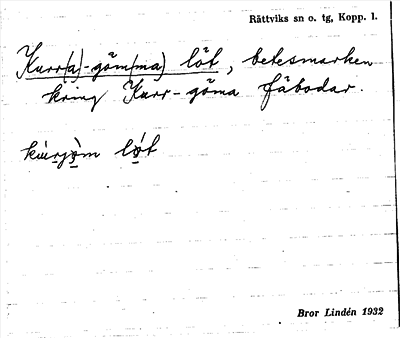 Rättviks sn o. tg, Kopp. l.
Kurr(a)-göm(ma) löt, betesmarken
kring Kurr-göma fäbodar.
Bror Lindén 1932